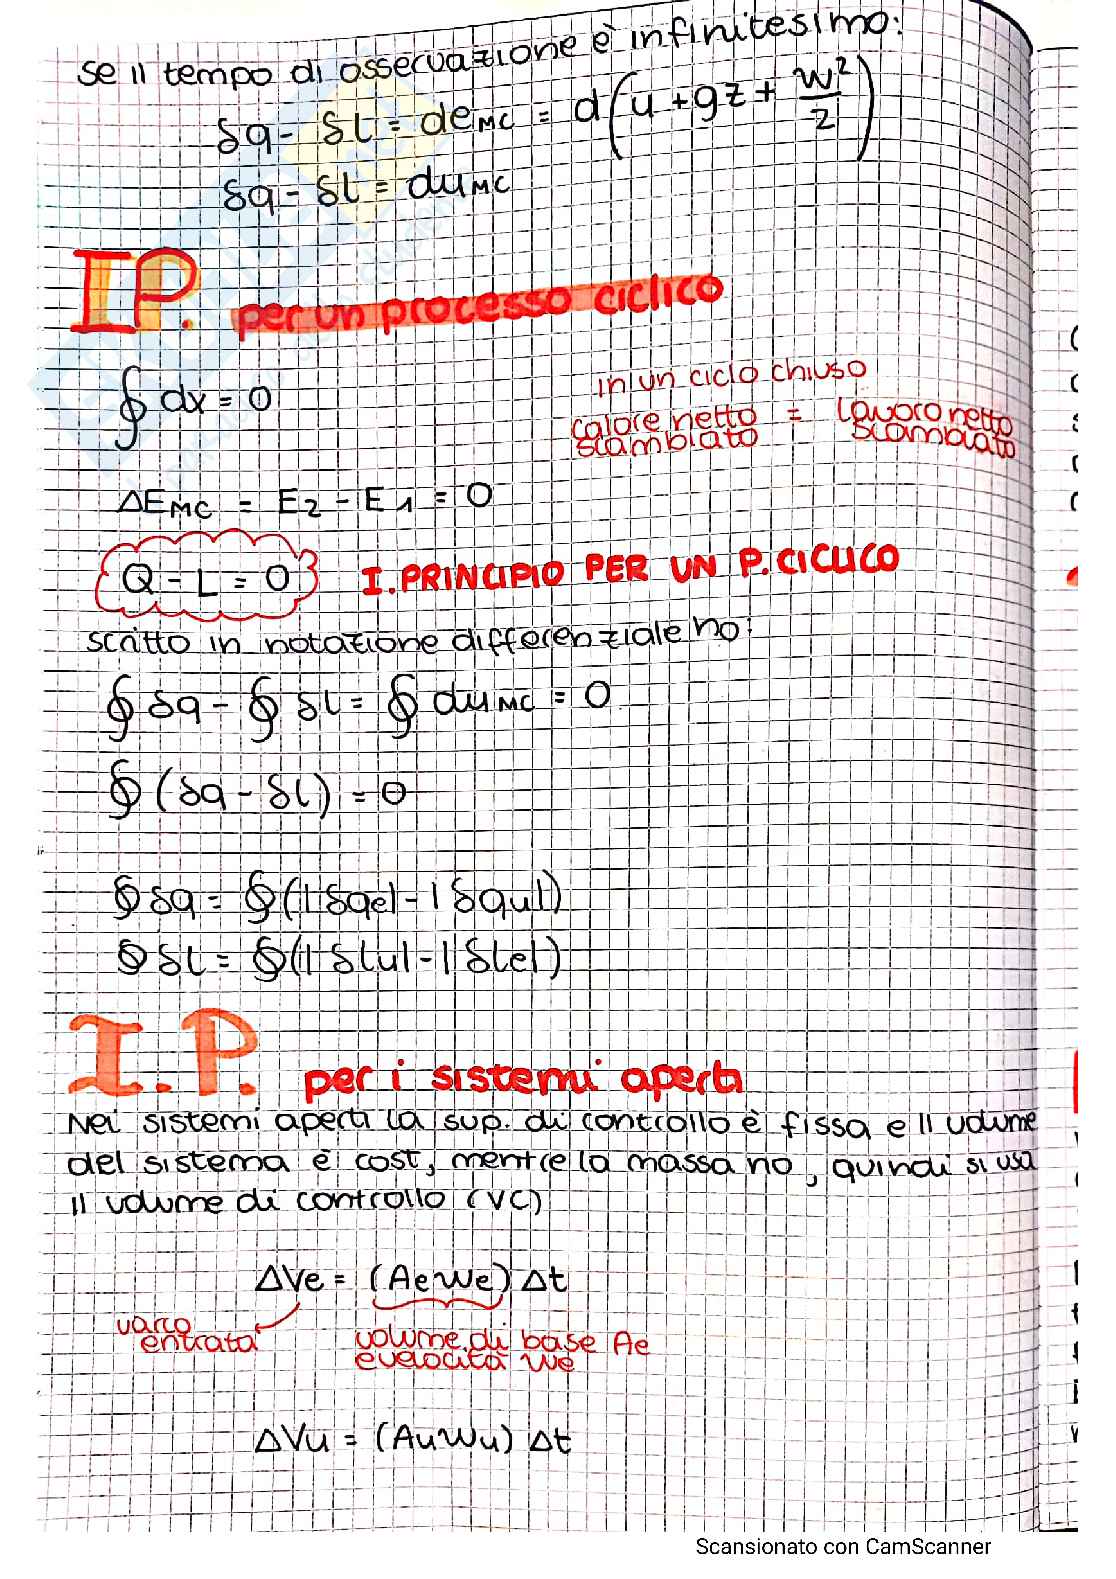 Se il tempo di osservazione è infinitesimo:
δq - δl = de_MC = d(u + gz + w²/2)
δq - δl = du_MC
I P. per un processo ciclico
∮ dx = 0
in un ciclo chiuso
calore netto scambiato = lavoro netto scambiato
ΔE_MC = E2 - E1 = 0
Q - L = 0 I. PRINCIPIO PER UN P. CICLICO
scritto in notazione differenziale ho:
∮ δq - ∮ δl = ∮ du_MC = 0
∮ (δq - δl) = 0
∮ δq = ∮(|δqe| - |δqu|)
∮ δl = ∮(|δlu| - |δle|)
I. P. per i sistemi aperti
Nei sistemi aperti la sup. di controllo è fissa e il volume
del sistema è cost, mentre la massa no, quindi si usa
il volume di controllo (VC)
ΔVe = (Ae we) Δt
varco entrata
volume di base Ae
e velocità we
ΔVu = (Au wu) Δt
Scansionato con CamScanner